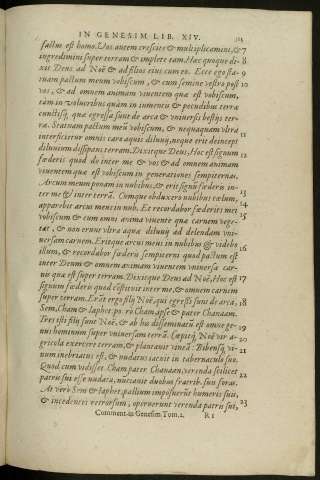 IN GENESIM LIB. XIV.
factus est homo. Vos autem crescite & multiplicamini, & 7
ingredimini super terram & implete eam. Hæc quoque di- 8
xit Deus ad Noë & ad filios eius cum eo. Ecce ego sta- 9
tuam pactum meum vobiscum, & cum semine vestro post 10
vos, & ad omnem animam viuentem quæ est vobiscum,
tam in volucribus quàm in iumentis & pecudibus terræ
cunctisq́; quæ egressa sunt de arca & vniuersis bestijs ter-
ræ. Statuam pactum meũ vobiscum, & nequaquam vltra 11
interficietur omnis caro aquis diluuij, neque erit deinceps
diluuium dissipans terram. Dixitque Deus, Hoc est signum 12
fœderis quod do inter me & vos & ad omnem animam
viuentem quæ est vobiscum in generationes sempiternas.
Arcum meum ponam in nubibus, & erit signũ fœderis in- 13
ter me & inter terrã. Cumque obduxero nubibus cœlum, 14
apparebit arcus meus in nub. Et recordabor fœderis mei 15
vobiscum & cum omni anima viuente quæ carnem vege-
tat, & non erunt vltra aquæ diluuij ad delendam vni-
uersam carnem. Eritque arcus meus in nubibus & videbo 16
illum, & recordabor fœderis sempiterni quod pactum est
inter Deum & omnem animam viuentem vniuersæ car-
nis quæ est super terram. Dixitque Deus ad Noë, Hoc est 17
signum fœderis quod cõstitui inter me, & omnem carnem
super terram. Erãt ergo filij Noë, qui egressi sunt de arca, 18
Sem, Cham & Iaphet. porro Cham ipse est pater Chanaam.
Tres isti filij sunt Noë, & ab his disseminatũ est omne ge- 19
nus hominum super vniuersam terrã. Cœpitq́; Noë vir a- 20
gricola exercere terram, & plantauit vineã. Bibensq́; vi- 21
num inebriatus est, & nudatus iacuit in tabernaculo suo.
Quod cum vidisset Cham pater Chanaan, verenda scilicet 22
patris sui esse nudata, nunciauit duobus fratrib. suis foras.
At verò Sem & Iaphet pallium imposuerũt humeris suis, 23
& incedentes retrorsum, operuerunt verenda patris sui,
Comment. in Genesim Tom. 2. R 1